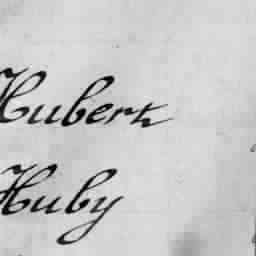 Hubert
Huby